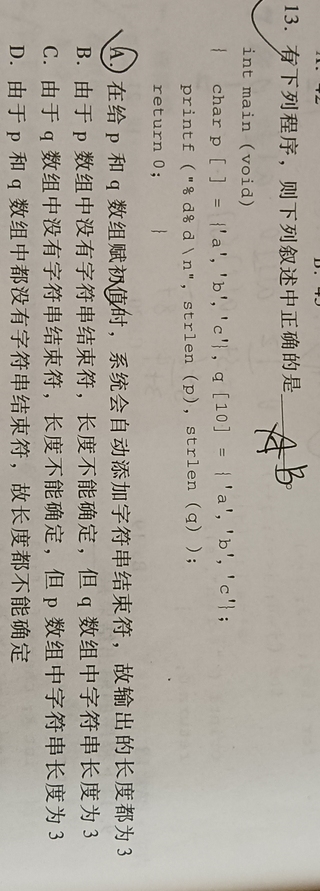 13. 有下列程序，则下列叙述中正确的是 A B。
int main (void)
{ char p [ ] = {'a', 'b', 'c'}, q [10] = {'a', 'b', 'c'};
printf ("%d%d\n", strlen (p), strlen (q) );
return 0; }
A. 在给 p 和 q 数组赋初值时，系统会自动添加字符串结束符，故输出的长度都为 3
B. 由于 p 数组中没有字符串结束符，长度不能确定，但 q 数组中字符串长度为 3
C. 由于 q 数组中没有字符串结束符，长度不能确定，但 p 数组中字符串长度为 3
D. 由于 p 和 q 数组中都没有字符串结束符，故长度都不能确定